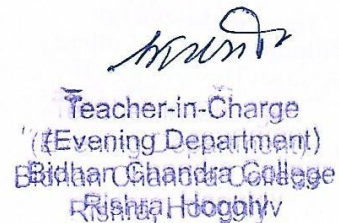 Teacher-in-Charge
(Evening Department)
Bidhan Chandra College
Rishra, Hooghly